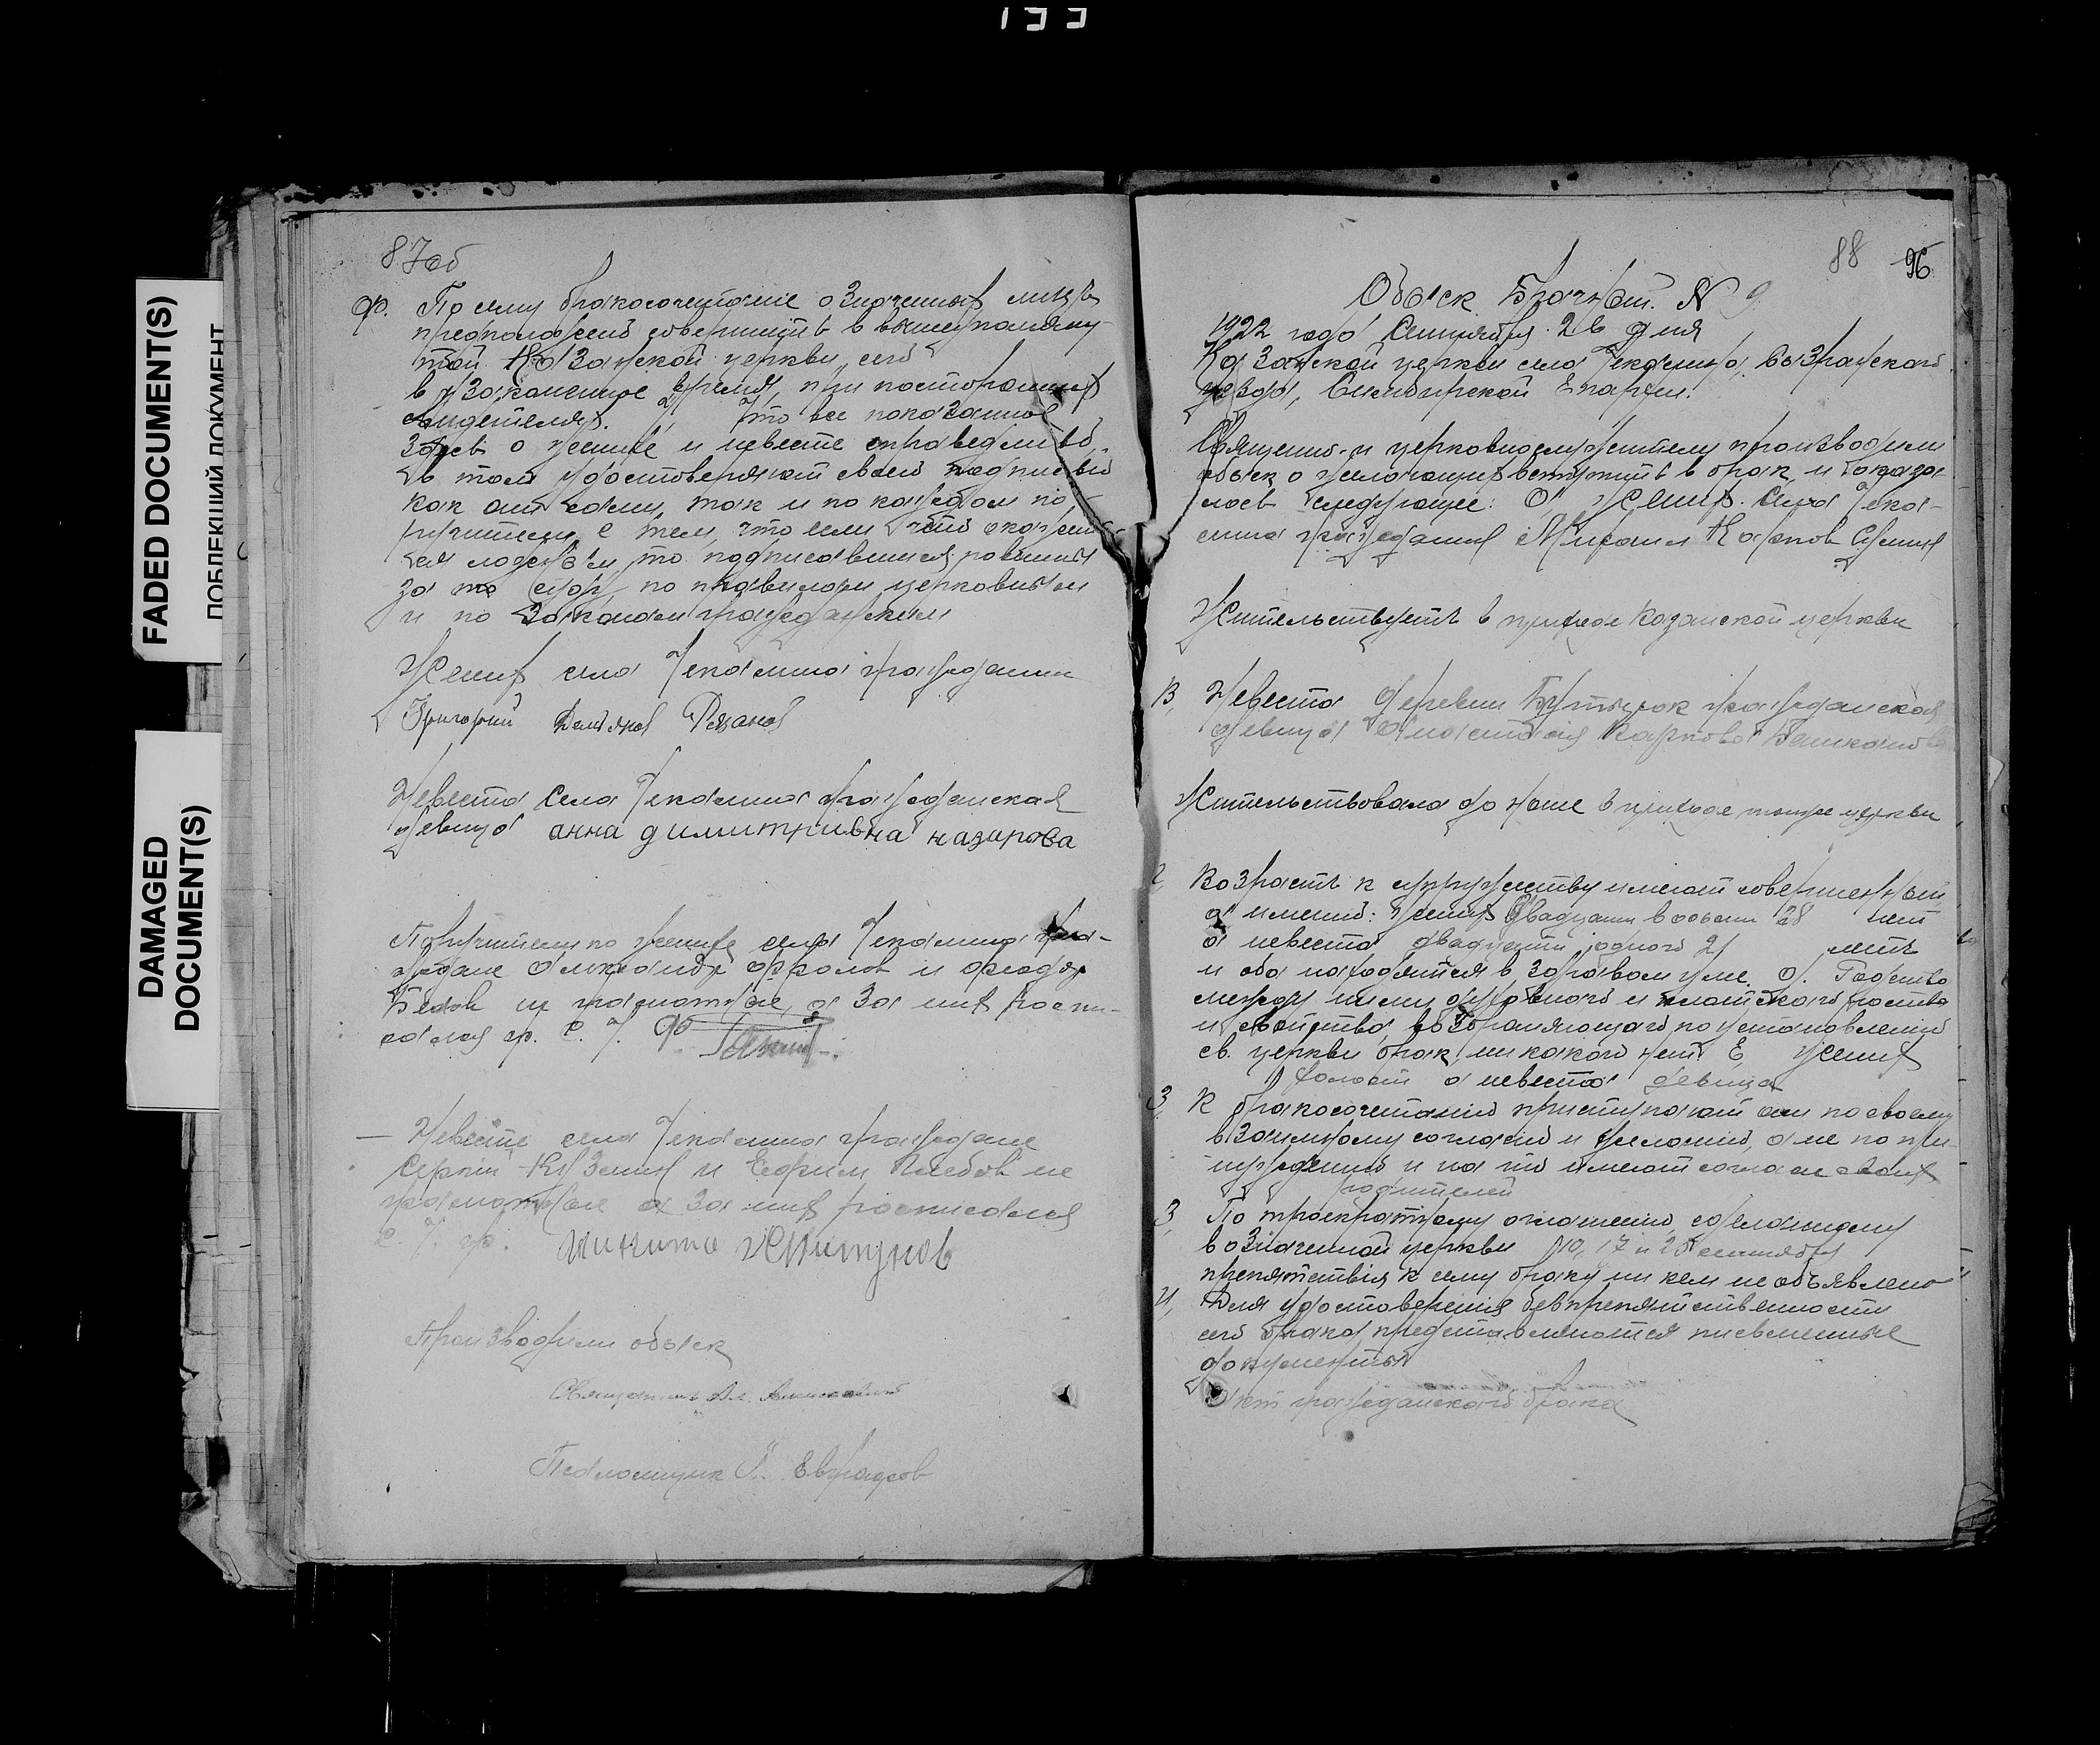 133
FADED DOCUMENT(S)
DAMAGED
DOCUMENT(S)
87об
Ф. По сему бракосочетание означенных лицъ
предположено совершить в вышеупомяну-
той Казанской церкви, сего
в узаконенное время, при посторонних
свидетелях. Что все показанное
здесь о женихе и невесте справедливо,
в том удостоверяют своей подписью
как они сами, так и по каждом по-
ручители, с тем, что если что окажет-
ся ложным, то подписавшиеся повинны
за то суду по правилам церковным
и по законам гражданским
Жених села Чекалина гражданин
Григорий Рязанов
Невеста села Чекалина гражданская
девица анна димитривна назарова
Поручители по женихе села Чекалина гра-
ждане Александр Фролов и Федор
Белов не грамотные, а за них распи-
сался гр. С. Ч.
Невесте села Чекалина граждане
Сергий Кузмин и Ефрим Глебов не
грамотные а за них росписался
С. Ч. гр. никита
Производили обыск
Священник Ал.
Псаломщик
88 96
Обыск Брачный. N 9
1922 года Сентября 26 дня
Казанской церкви села Чекалина, Сызранского
уезда, Симбирской Епархии.
Священно-и церковнослужители производили
обыск о желающих вступить в брак, и оказа-
лось следующее: А, Жених. Села Чека-
лина гражданин Михаил Карпов
Жительствуетъ в приходе Казанской церкви
В, Невеста деревни Бутырок гражданская
девица Анастасия Карпова
Жительствовала до ныне в приходе тойже церкви
2, Возрастъ к супружеству имеют совершенный,
а именно: жених двадцати восьми 28 лет
а невеста двадцати одного 21 летъ
и оба находятся в здравом уме. Д. Родства
между ними духовного и плотского родства
и свойства, возбраняющаго по установлению
св. церкви брак, никакого нет. Е, жених
холост а невеста девица
3, К бракосочетанию приступают они по своему
взаимному согласию и желанию, а не по при-
нуждению и на то имеют согласие своих
родителей
3, По троекратному оглашению, сделанному
в означенной церкви 10, 17 и 25 сентября
препятствия к сему браку ни кем не объявлено
И, Для удостоверения безпрепятственности
сего брака, представляются письменные
документы
Акт гражданского брака